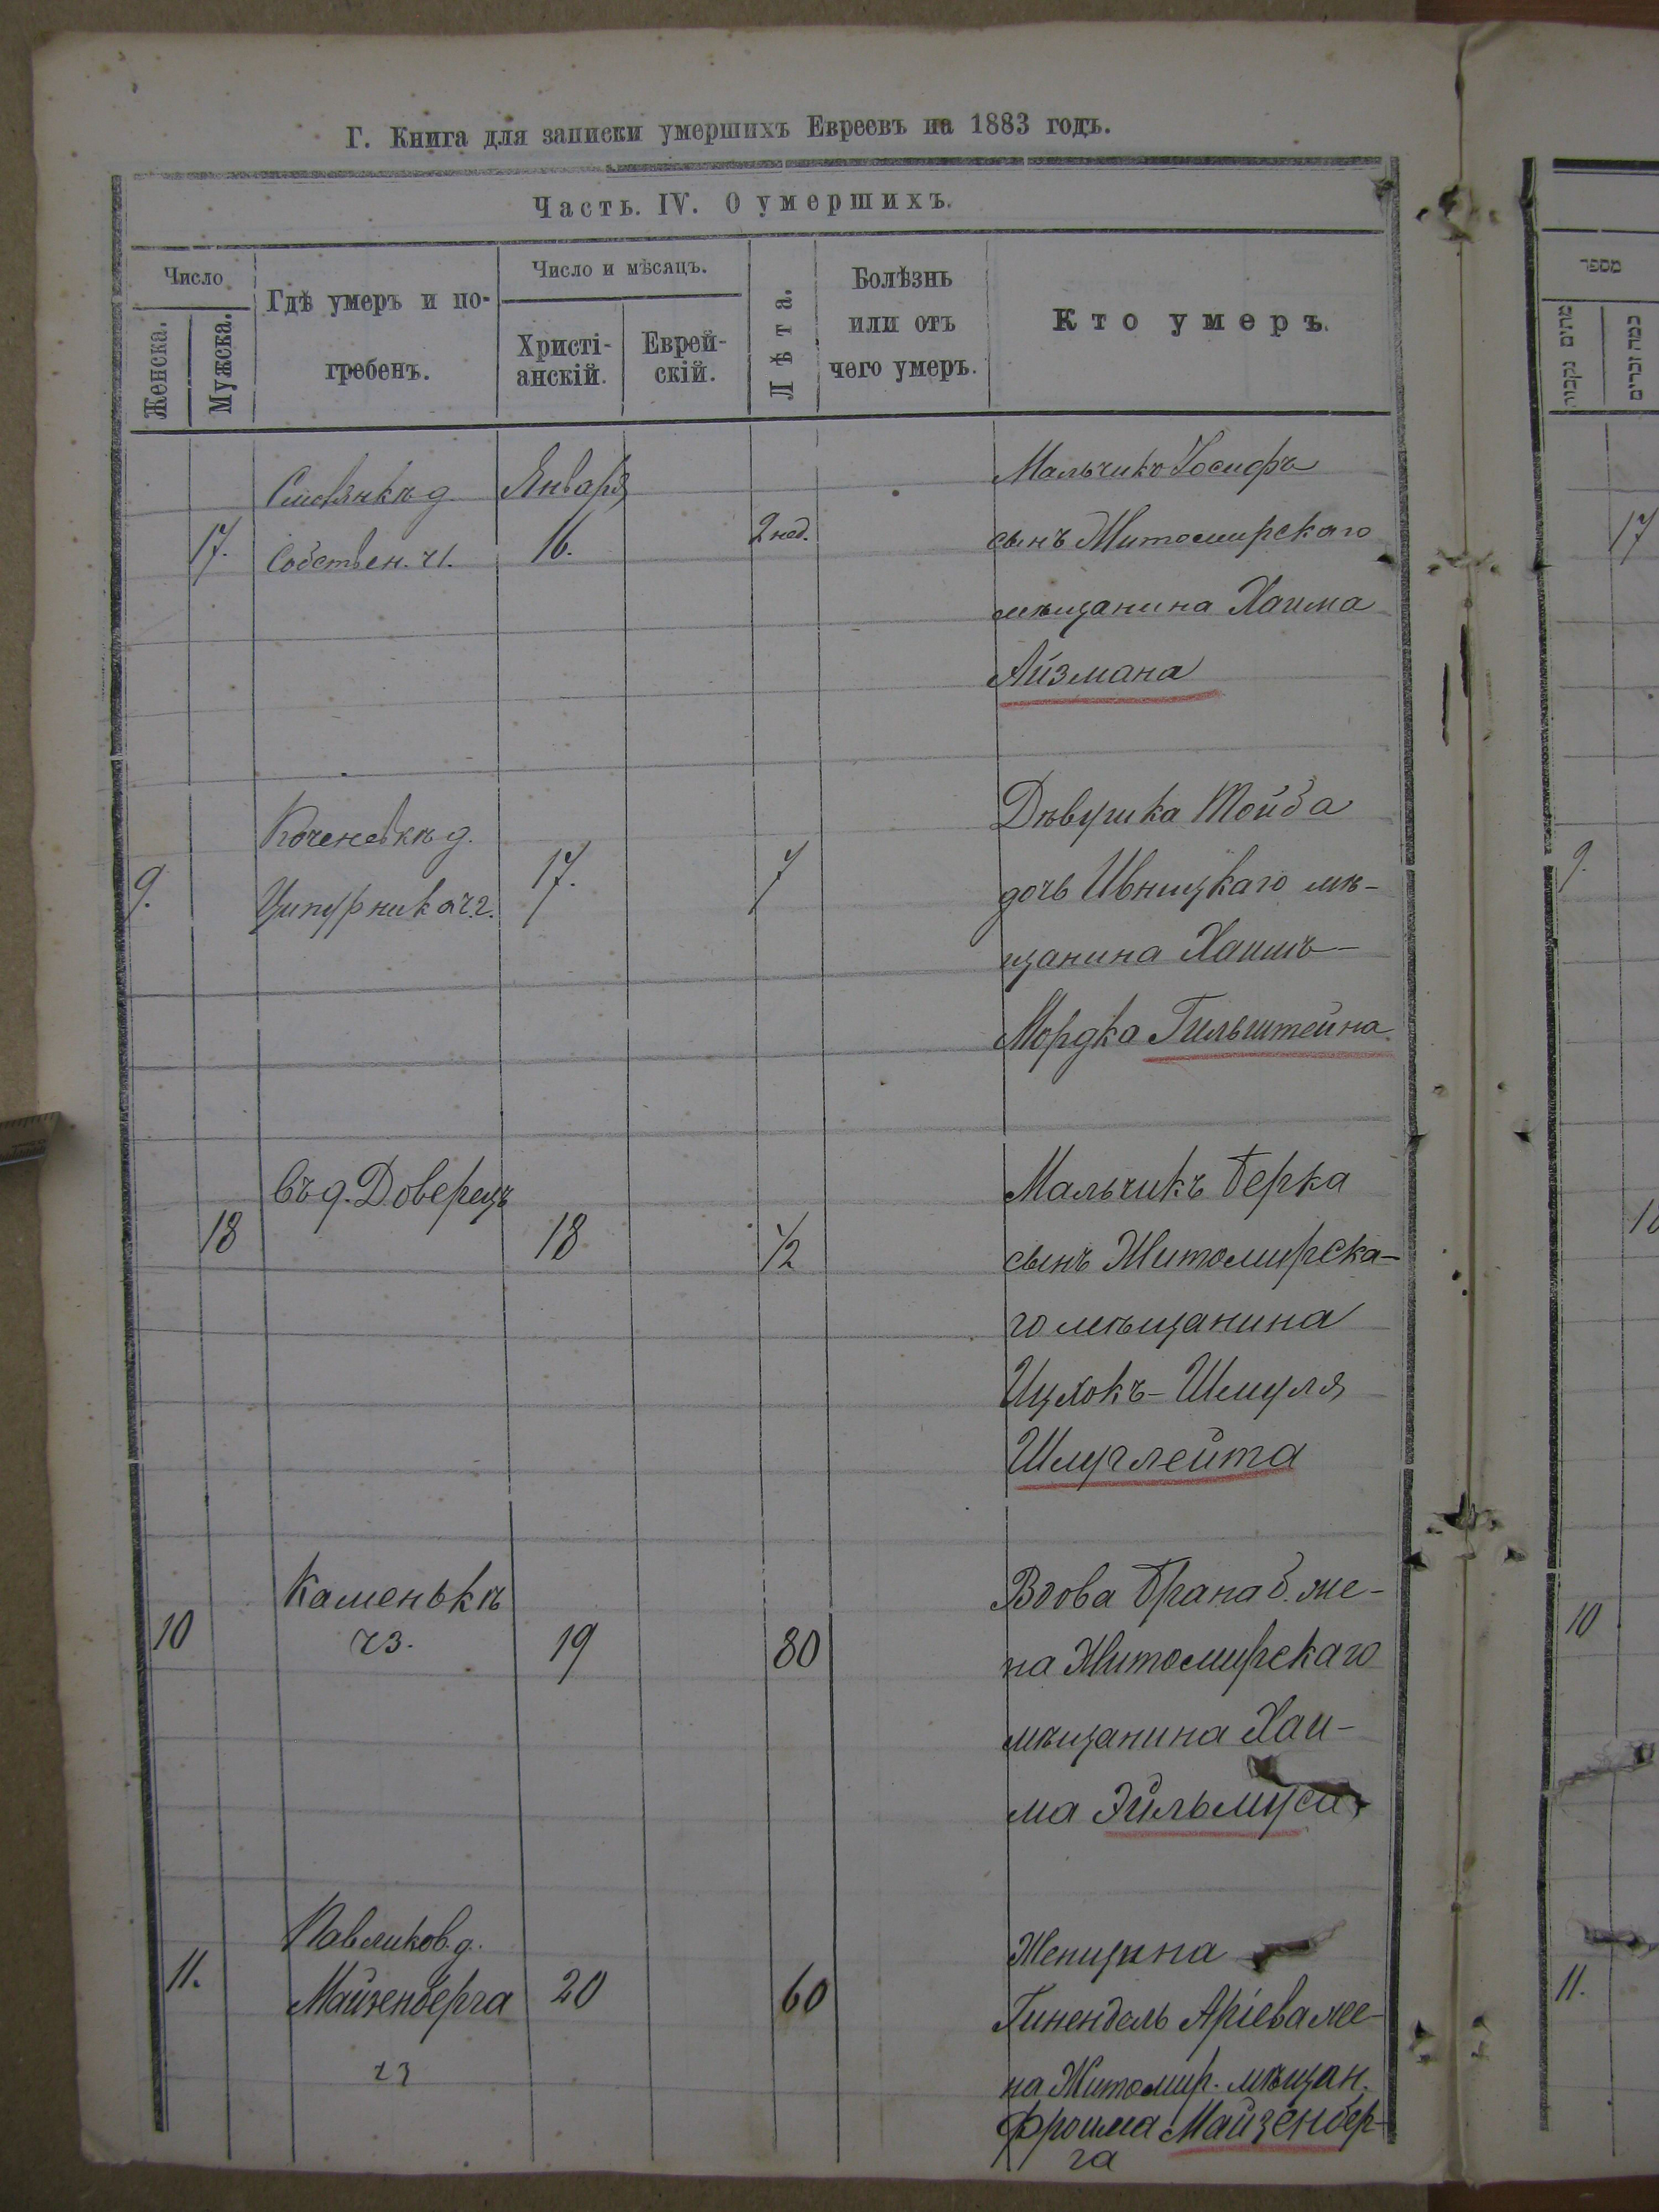 Г. Книга для записки умершихъ Евреевъ на 1883 годъ.
Часть. IV. О умершихъ.
Число
Женска.
Мужска.
Гдѣ умеръ и по-
гребенъ.
Число и мѣсяцъ.
Христі-
анскій.
Еврей-
скій.
Лѣта.
Болѣзнь
или отъ
чего умеръ.
Кто умеръ.
מספר
כמה זכרים
17.
д.
Собствен. ч1.
Января
16.
2 нед.
Мальчикъ Іосифъ
сынъ Житомирскаго
мѣщанина Хаима
Айзмана
17
9.
Коченевкѣ д.
Ципурника ч.2.
17.
7
Дѣвушка Тойба
дочь Ивницкаго мѣ-
щанина Хаимъ-
Мордка Гильштейна.
9.
18
Въ д. Доверецъ
18
1/2
Мальчикъ Берка
сынъ Житомирска-
го мѣщанина
Ицхокъ-Шмуля
Шмуглейта
10
Каменькѣ
ч3.
19
80
Вдова Брана б. же-
на Житомирскаго
мѣщанина Хаи-
ма Эйльмуса
10
11.
Павликов. д.
Майзенберга
ч3
20
60
Женщина
Гинендель Аріева же-
на Житомир. мѣщан.
Фроима Майзенбер-
га
11.